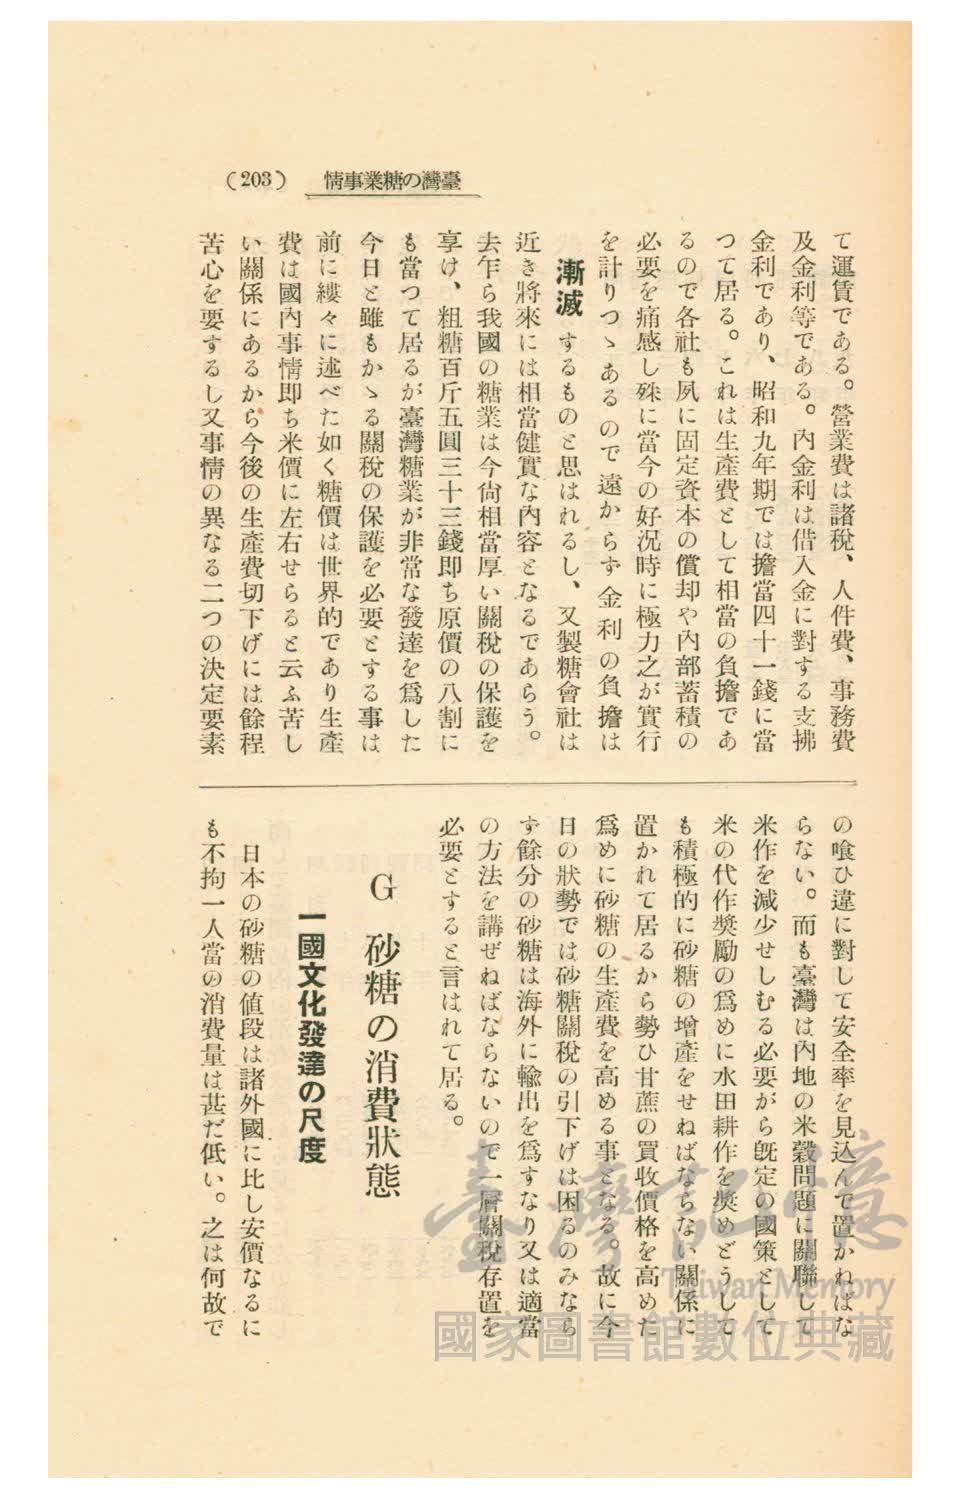 (203) 情事業糖の灣臺
て運賃である。營業費は諸稅、人件費、事務費
及金利等である。內金利は借入金に對する支拂
金利であり、昭和九年期では擔當四十一錢に當
つて居る。これは生產費として相當の負擔であ
るので各社も夙に固定資本の償却や內部蓄積の
必要を痛感し殊に當今の好況時に極力之が實行
を計りつゝあるので遠からず金利の負擔は
漸減するものと思はれるし、又製糖會社は
近き將來には相當健實な內容となるであらう。
去乍ら我國の糖業は今尙相當厚い關稅の保護を
享け、粗糖百斤五圓三十三錢即ち原價の八割に
も當つて居るが臺灣糖業が非常な發達を爲した
今日と雖もかゝる關稅の保護を必要とする事は
前に縷々に述べた如く糖價は世界的であり生產
費は國內事情即ち米價に左右せらると云ふ苦し
い關係にあるから今後の生產費切下げには餘程
苦心を要するし又事情の異なる二つの決定要素
の喰ひ違に對して安全率を見込んで置かねばな
らない。而も臺灣は內地の米穀問題に關聯して
米作を減少せしむる必要がら既定の國策として
米の代作獎勵の爲めに水田耕作を奬めどうして
も積極的に砂糖の增產をせねばならない關係に
置かれて居るから勢ひ甘蔗の買收價格を高めた
爲めに砂糖の生產費を高める事となる。故に今
日の狀勢では砂糖關稅の引下げは困るのみなら
ず餘分の砂糖は海外に輸出を爲すなり又は適當
の方法を講ぜねばならないので一層關稅存置を
必要とすると言はれて居る。
G 砂糖の消費狀態
一國文化發達の尺度
日本の砂糖の値段は諸外國に比し安價なるに
も不拘一人當の消費量は甚だ低い。之は何故で
臺灣記憶
Taiwan Memory
國家圖書館數位典藏